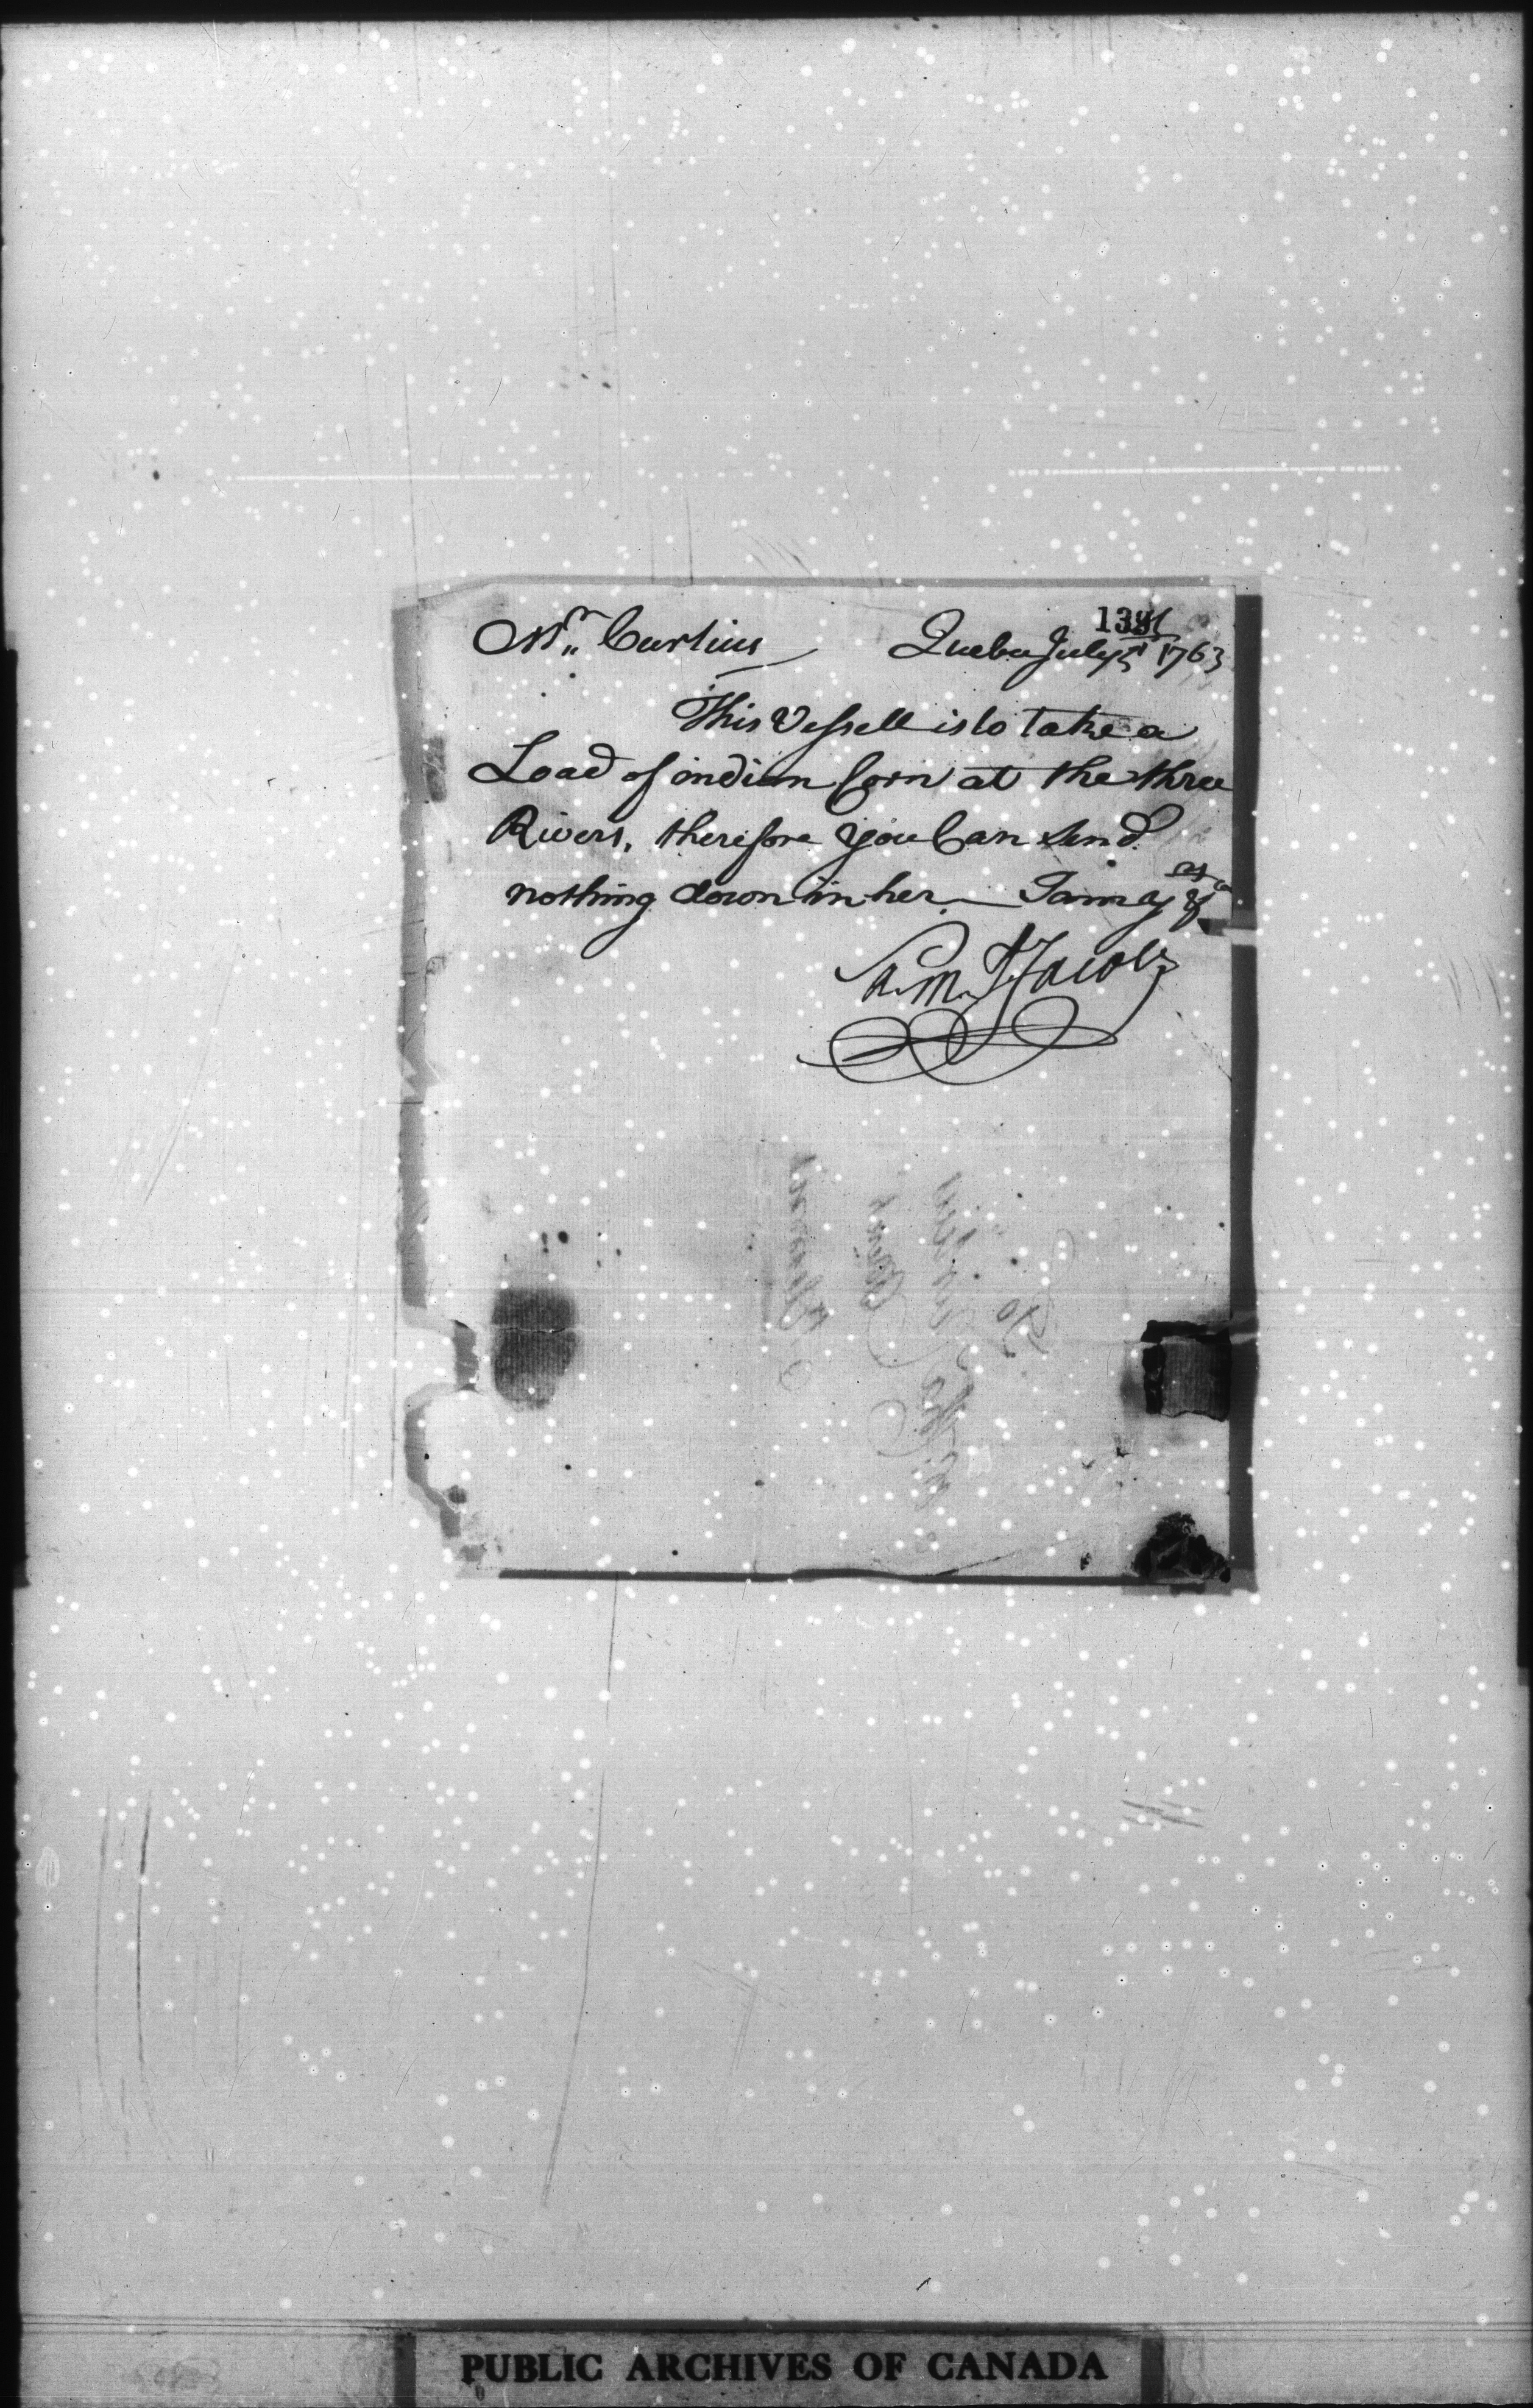 Mr. Curtius Quebec July 5 1763
This Vessell is to take a
Load of indian Corn at the three
Rivers, therefore you Can send
nothing down in her. I am as
Sam. Jacobs
PUBLIC ARCHIVES OF CANADA